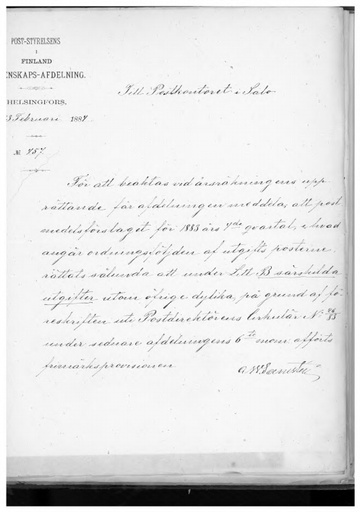 POST-STYRELSENS
I
FINLAND
ENSKAPS-AFDELNING.
HELSINGFORS,
Februari 1884
№ 457
Till Postkontoret i Salo
För att beaktas vid årsräkningens upp
rättande får afdelningen meddela, att post
medelsförslaget för 1883 års 4de qvartal, i hvad
angår ordningsföljden af utgifts posterne
rättats sålunda att under Litt. B särskilda
utgifter utom öfrige dylika, på grund af fö
reskriften uti Postdirektörens Cirkulär N:
under sednare afdelningens 6te mom afförts
frimärksprovisionen